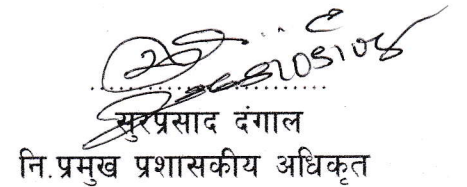 सुरप्रसाद दंगाल
नि.प्रमुख प्रशासकीय अधिकृत